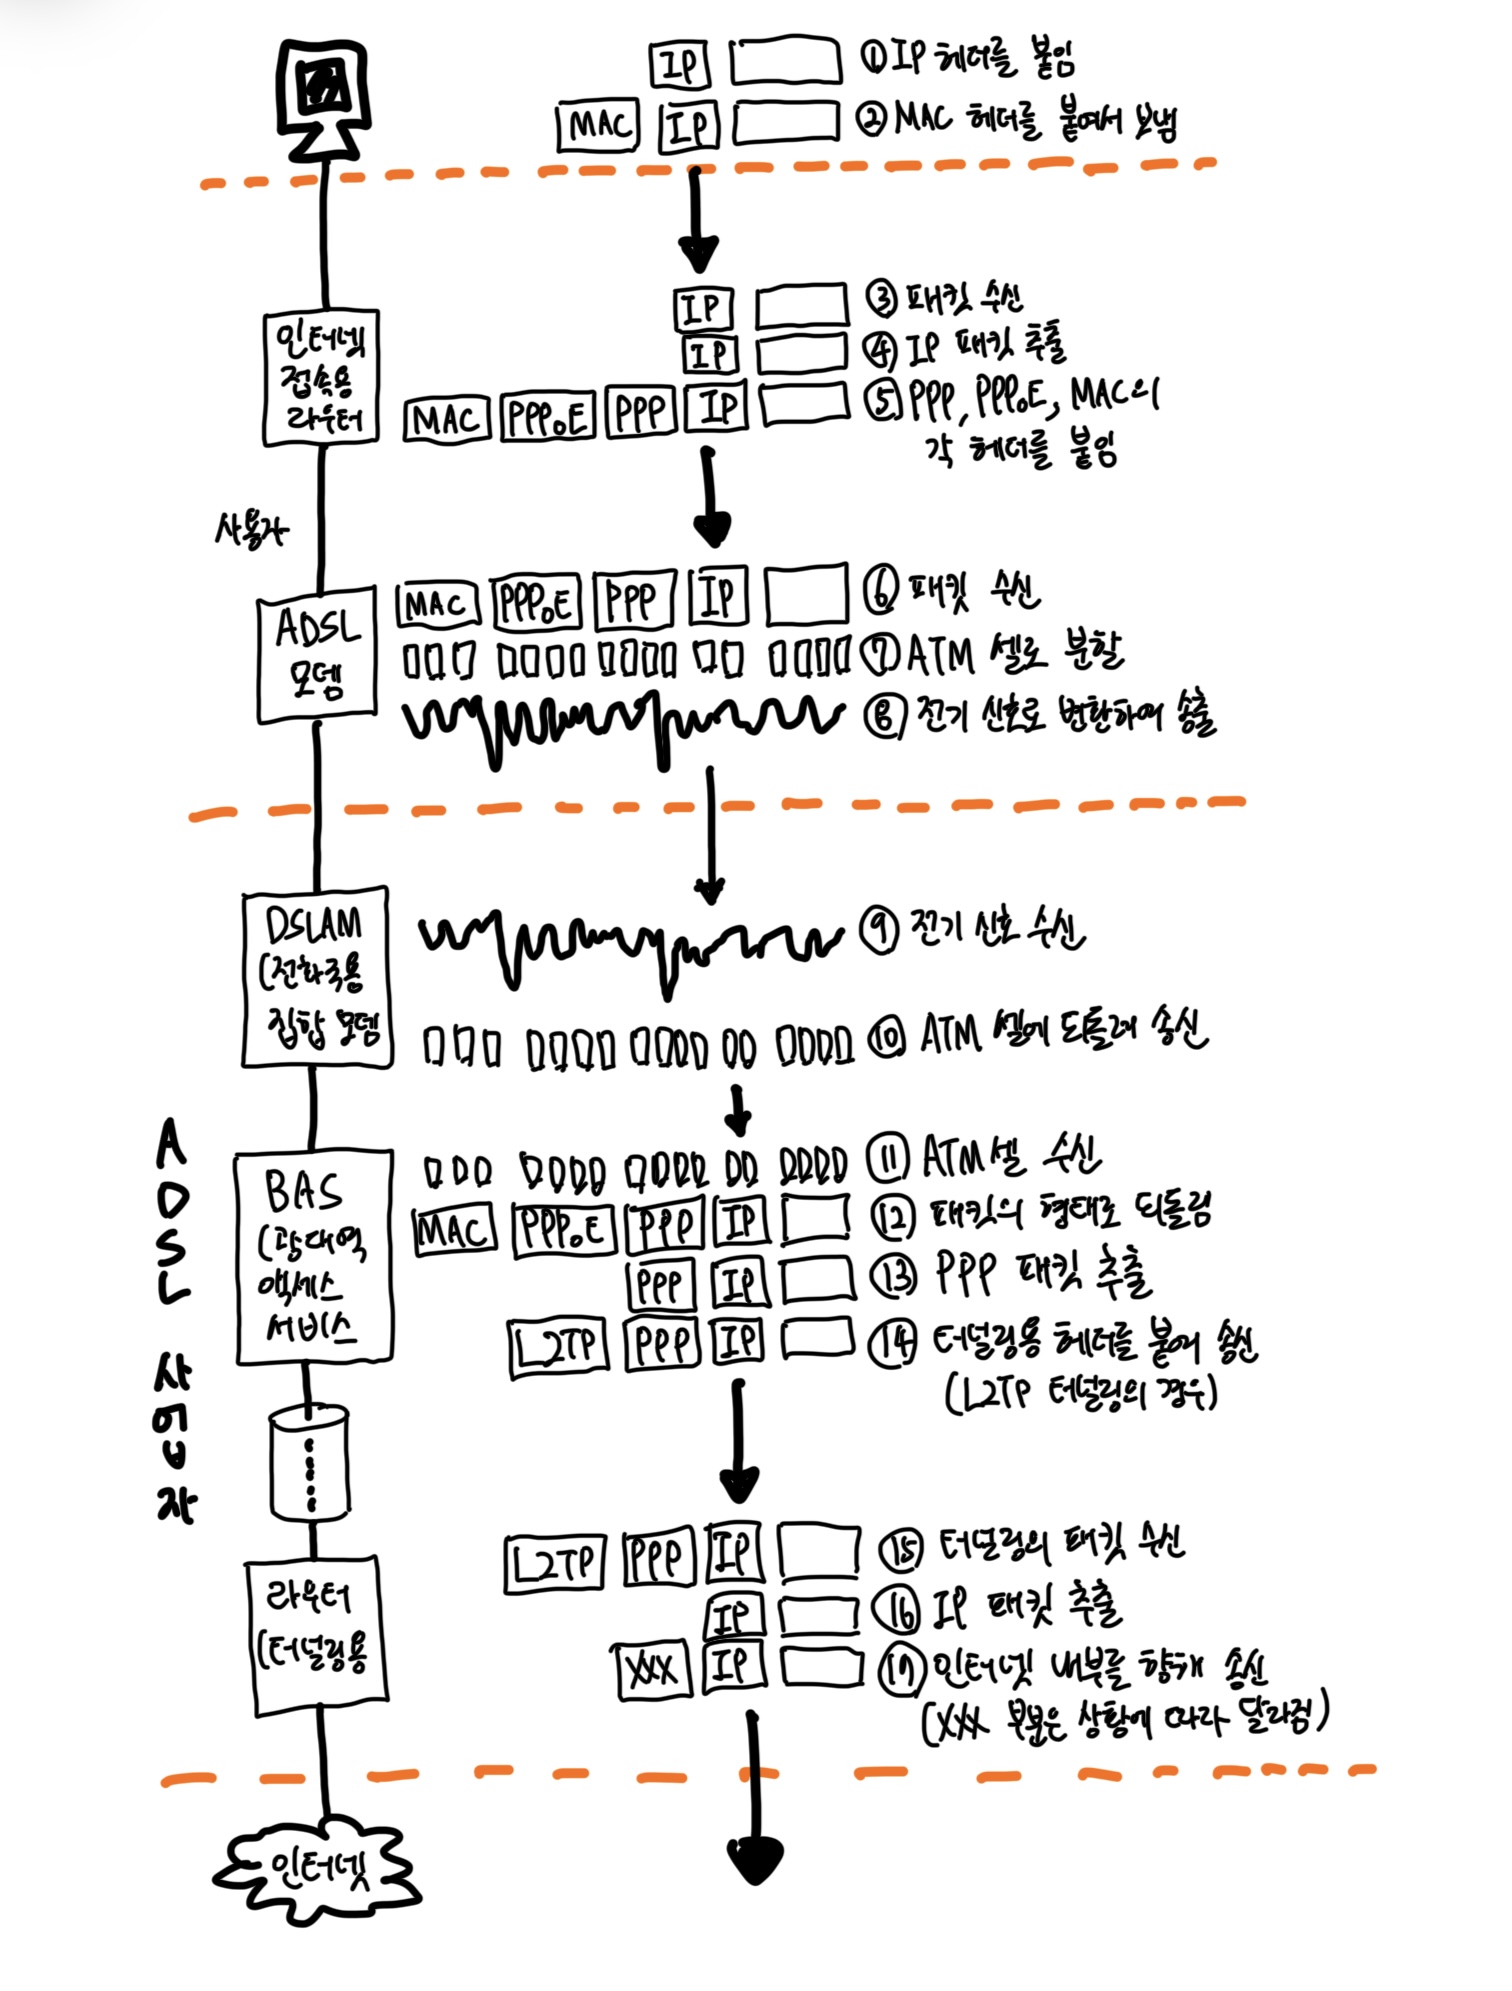 IP ① IP 헤더를 붙임
MAC IP ② MAC 헤더를 붙여서 보냄
인터넷
접속용
라우터
IP ③ 패킷 수신
IP ④ IP 패킷 추출
MAC PPPoE PPP IP ⑤ PPP, PPPoE, MAC의
각 헤더를 붙임
사용자
ADSL
모뎀
MAC PPPoE PPP IP ⑥ 패킷 수신
⑦ ATM 셀로 분할
⑧ 전기 신호로 변환하여 송출
DSLAM
(전화국용
집합 모뎀
⑨ 전기 신호 수신
⑩ ATM 셀에 되돌려 송신
ADSL 사업자
BAS
(광대역
액세스
서비스
⑪ ATM셀 수신
MAC PPPoE PPP IP ⑫ 패킷의 형태로 되돌림
PPP IP ⑬ PPP 패킷 추출
L2TP PPP IP ⑭ 터널링용 헤더를 붙여 송신
(L2TP 터널링의 경우)
라우터
(터널링용
L2TP PPP IP ⑮ 터널링의 패킷 수신
IP ⑯ IP 패킷 추출
XXX IP ⑰ 인터넷 내부를 향해 송신
(XXX 부분은 상황에 따라 달라짐)
인터넷